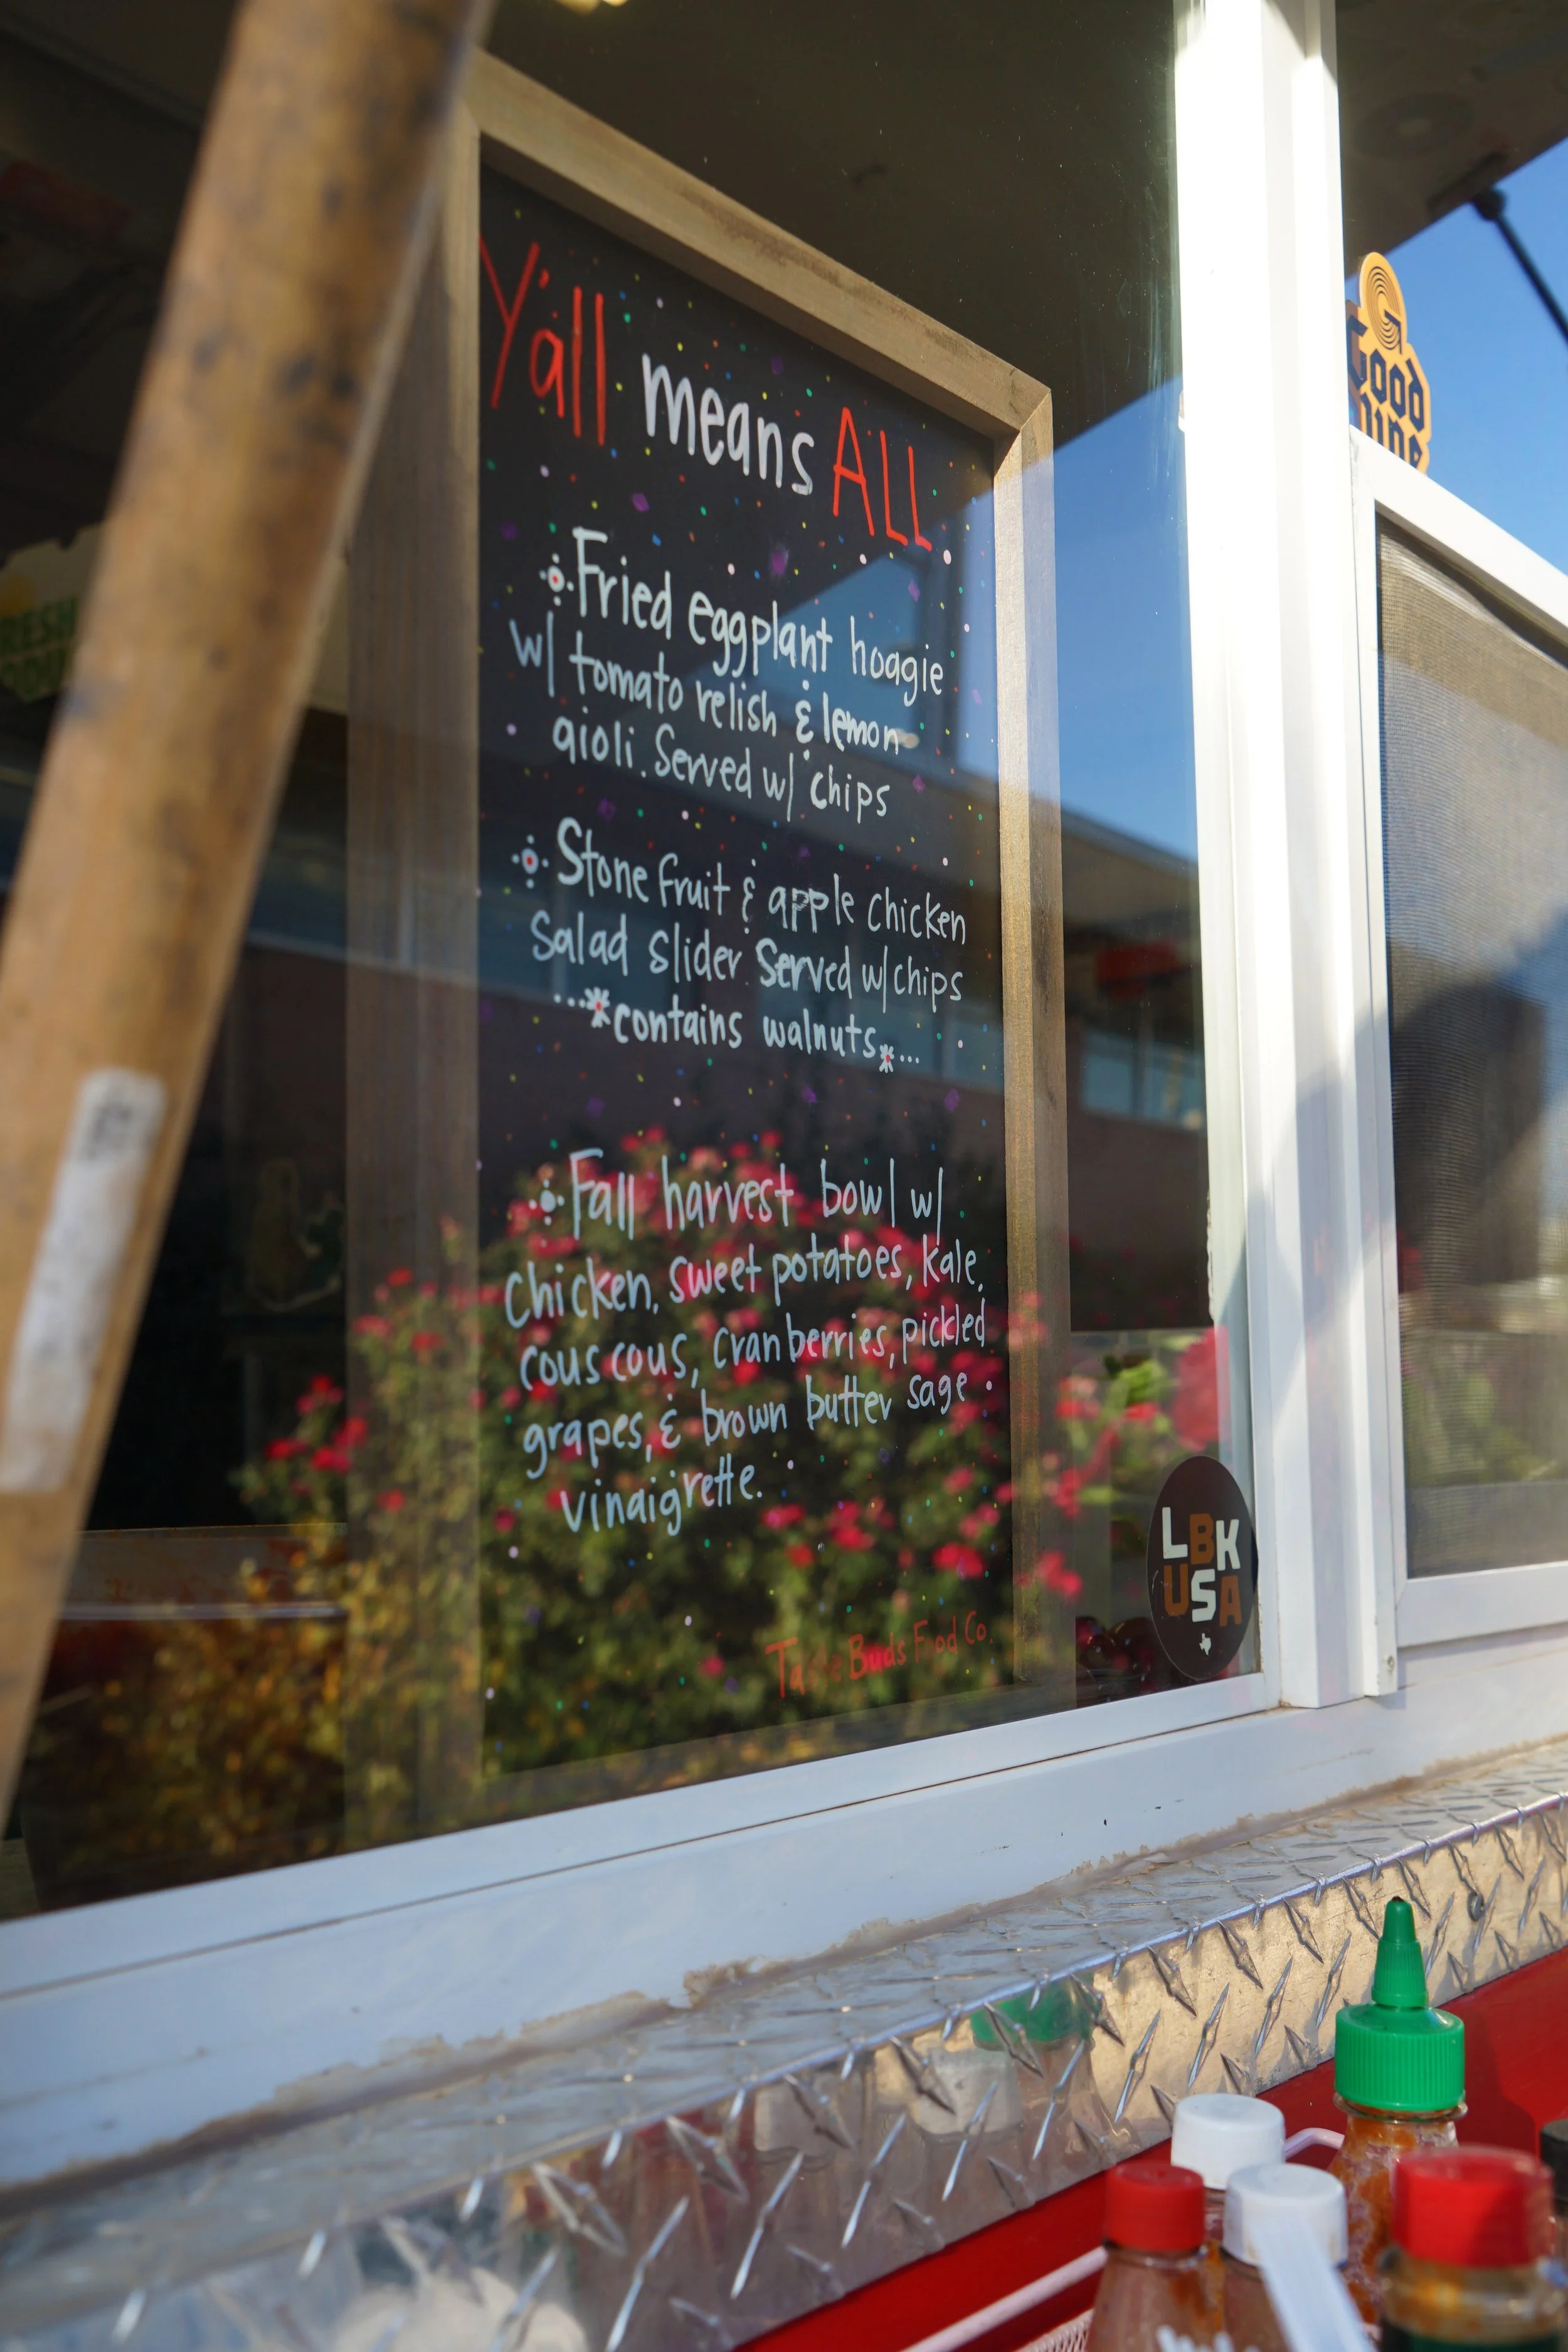 Y'all means ALL
Fried eggplant hoagie
w/ tomato relish & lemon
aioli. Served w/ chips
Stone fruit & apple chicken
Salad Slider. Served w/ chips
...*contains walnuts*...
Fall harvest bowl w/
Chicken, sweet potatoes, kale,
cous cous, cranberries, pickled
grapes, & brown butter sage
vinaigrette.
Taste Buds Food Co.
LBK
USA
G
Good